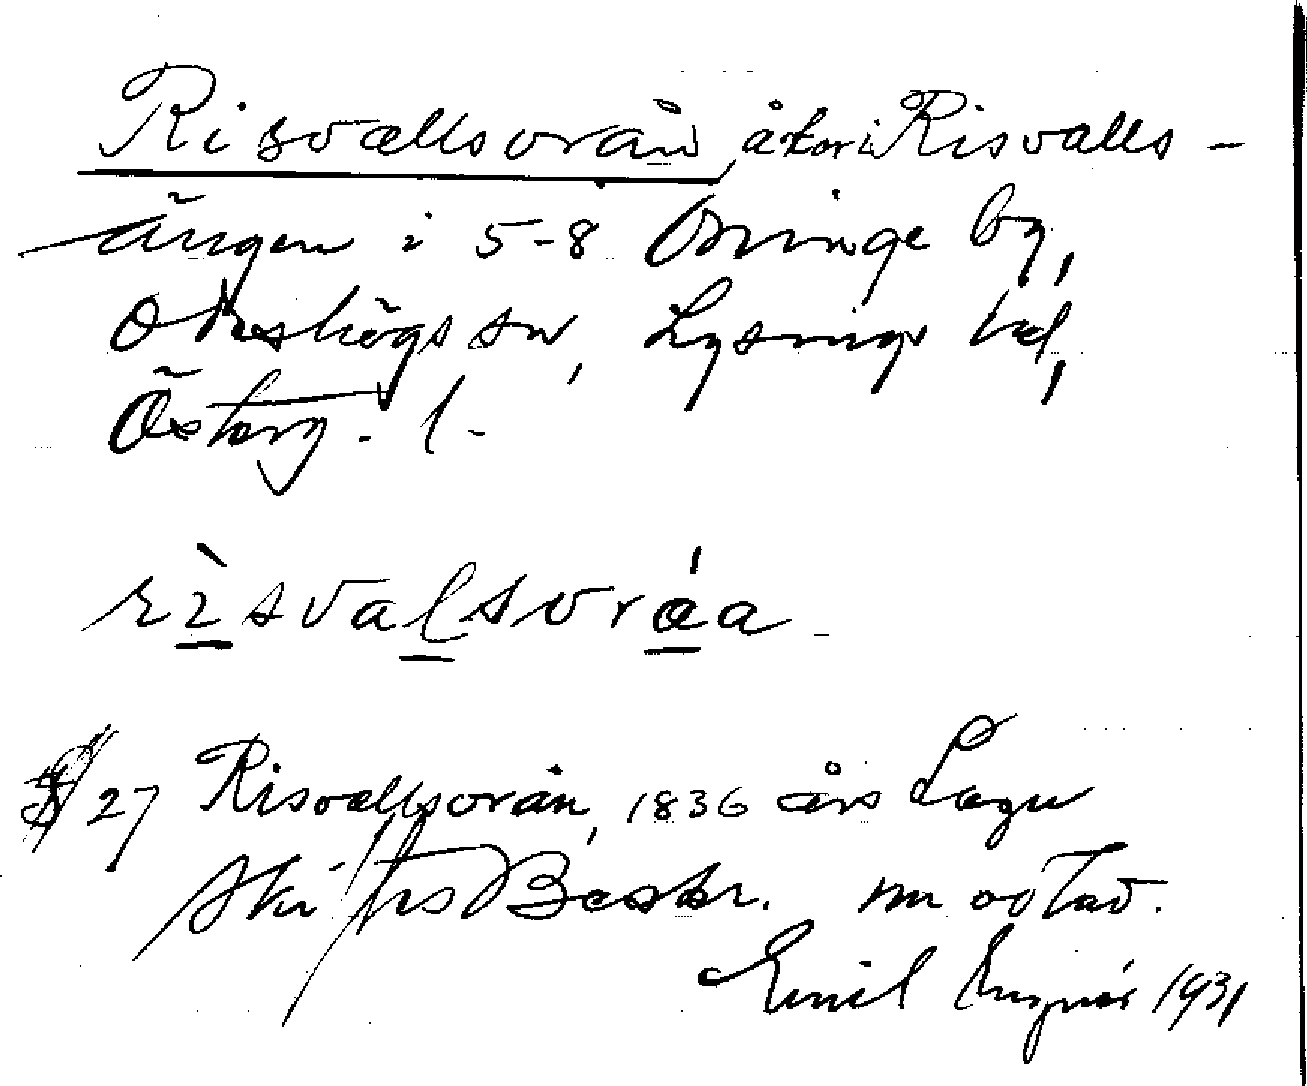 Risvallsvrån, åker i Risvalls-
ängen i 5-8 Öninge by,
Ödeshögs sn, Lysings hd,
Österg. l.
rìsvalsvráa
27 Risvallsvrån, 1836 års Laga
Skifts Beskr. nu ostad.
Emil 1931